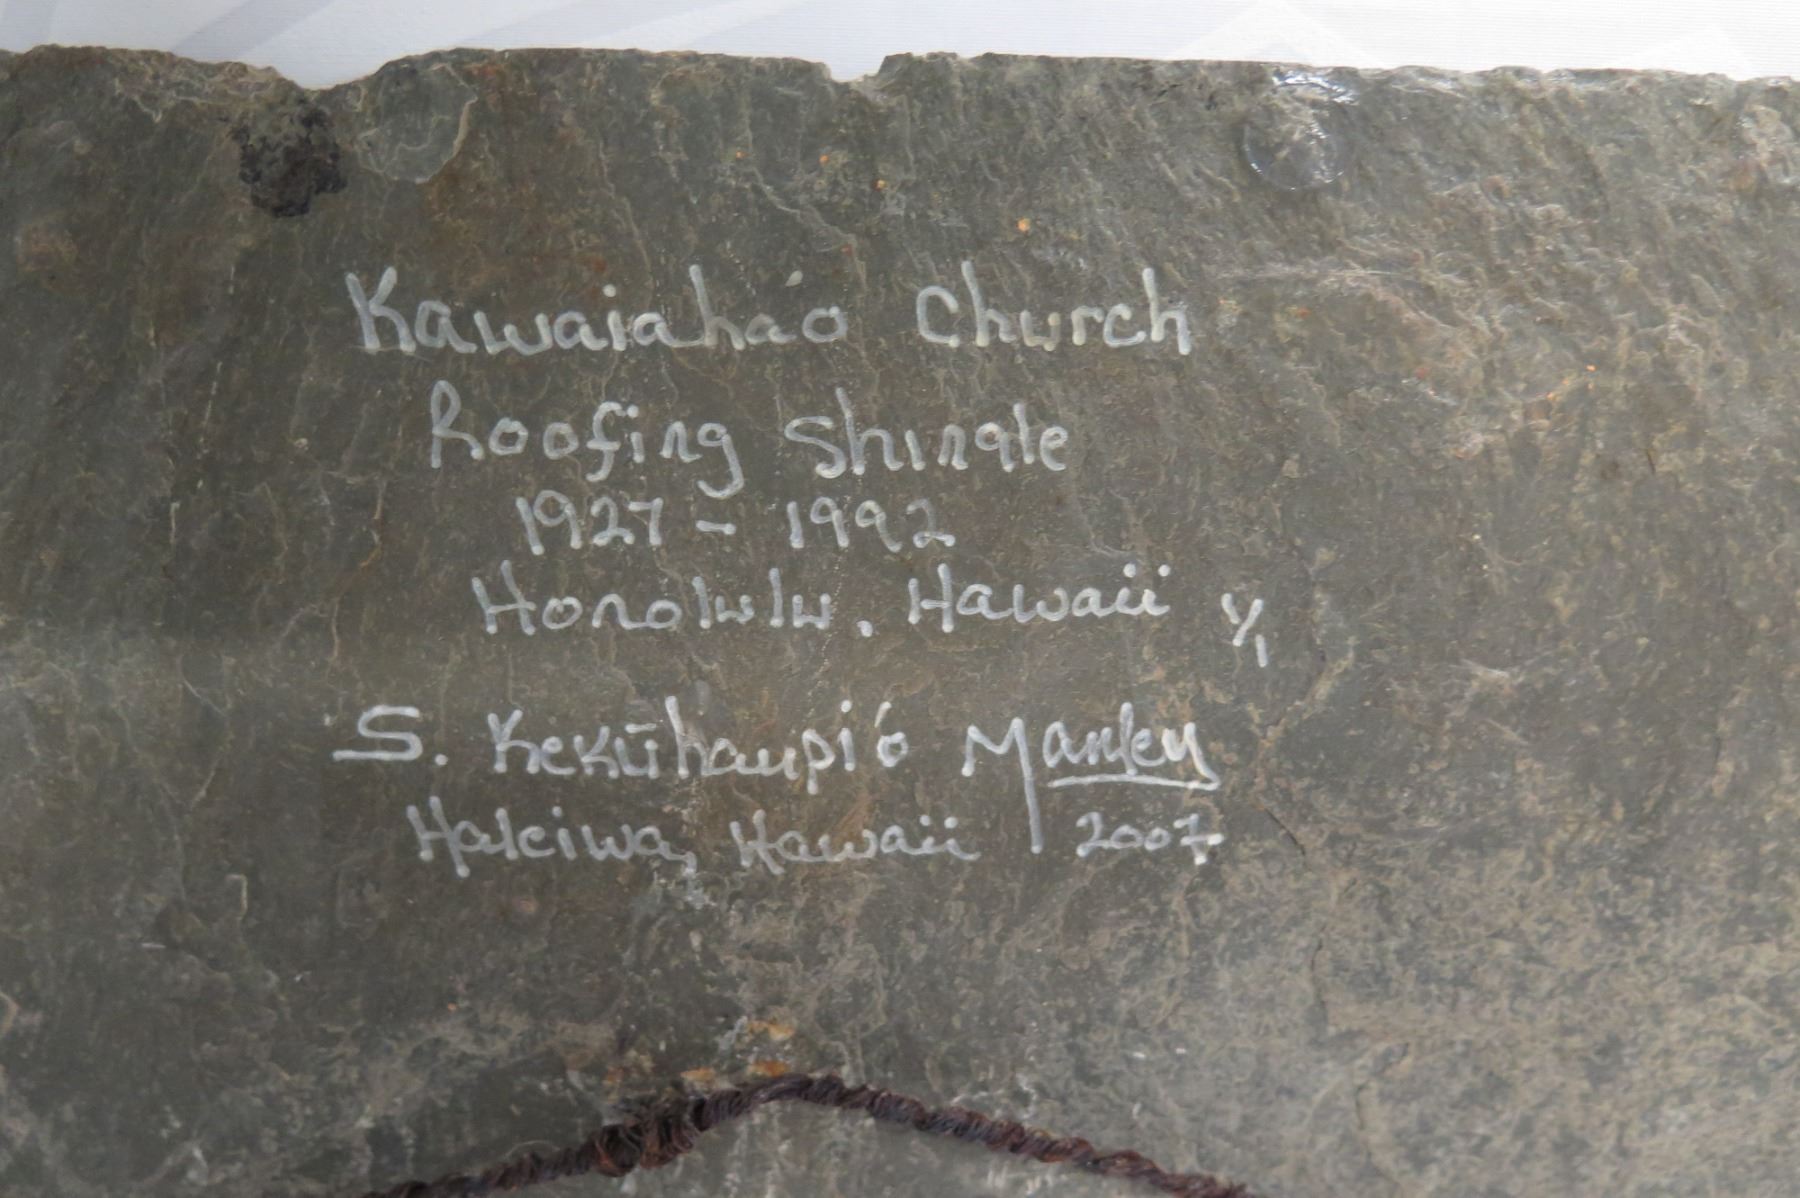 Kawaiahao Church
Roofing Shingle
1927 - 1992
Honolulu, Hawaii 1/1
S. Kekūhaupi'o Manley
Haleiwa, Hawaii 2007